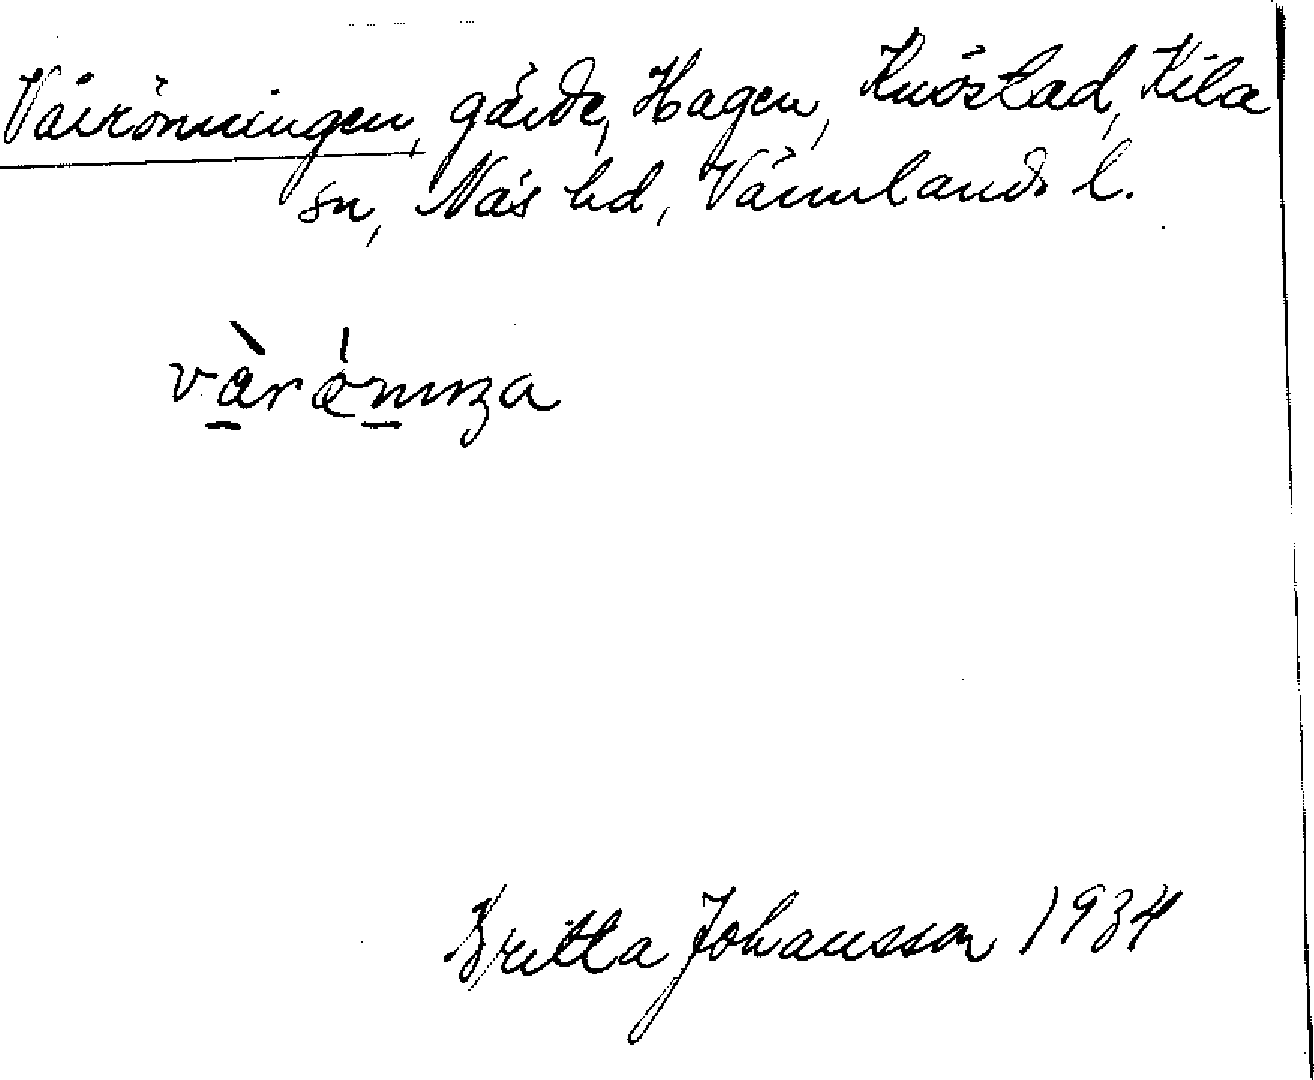 Vårrönningen, gärde, Hagen, Knöstad, Kila
sn, Näs hd, Värmlands l.
Britta Johansson 1934